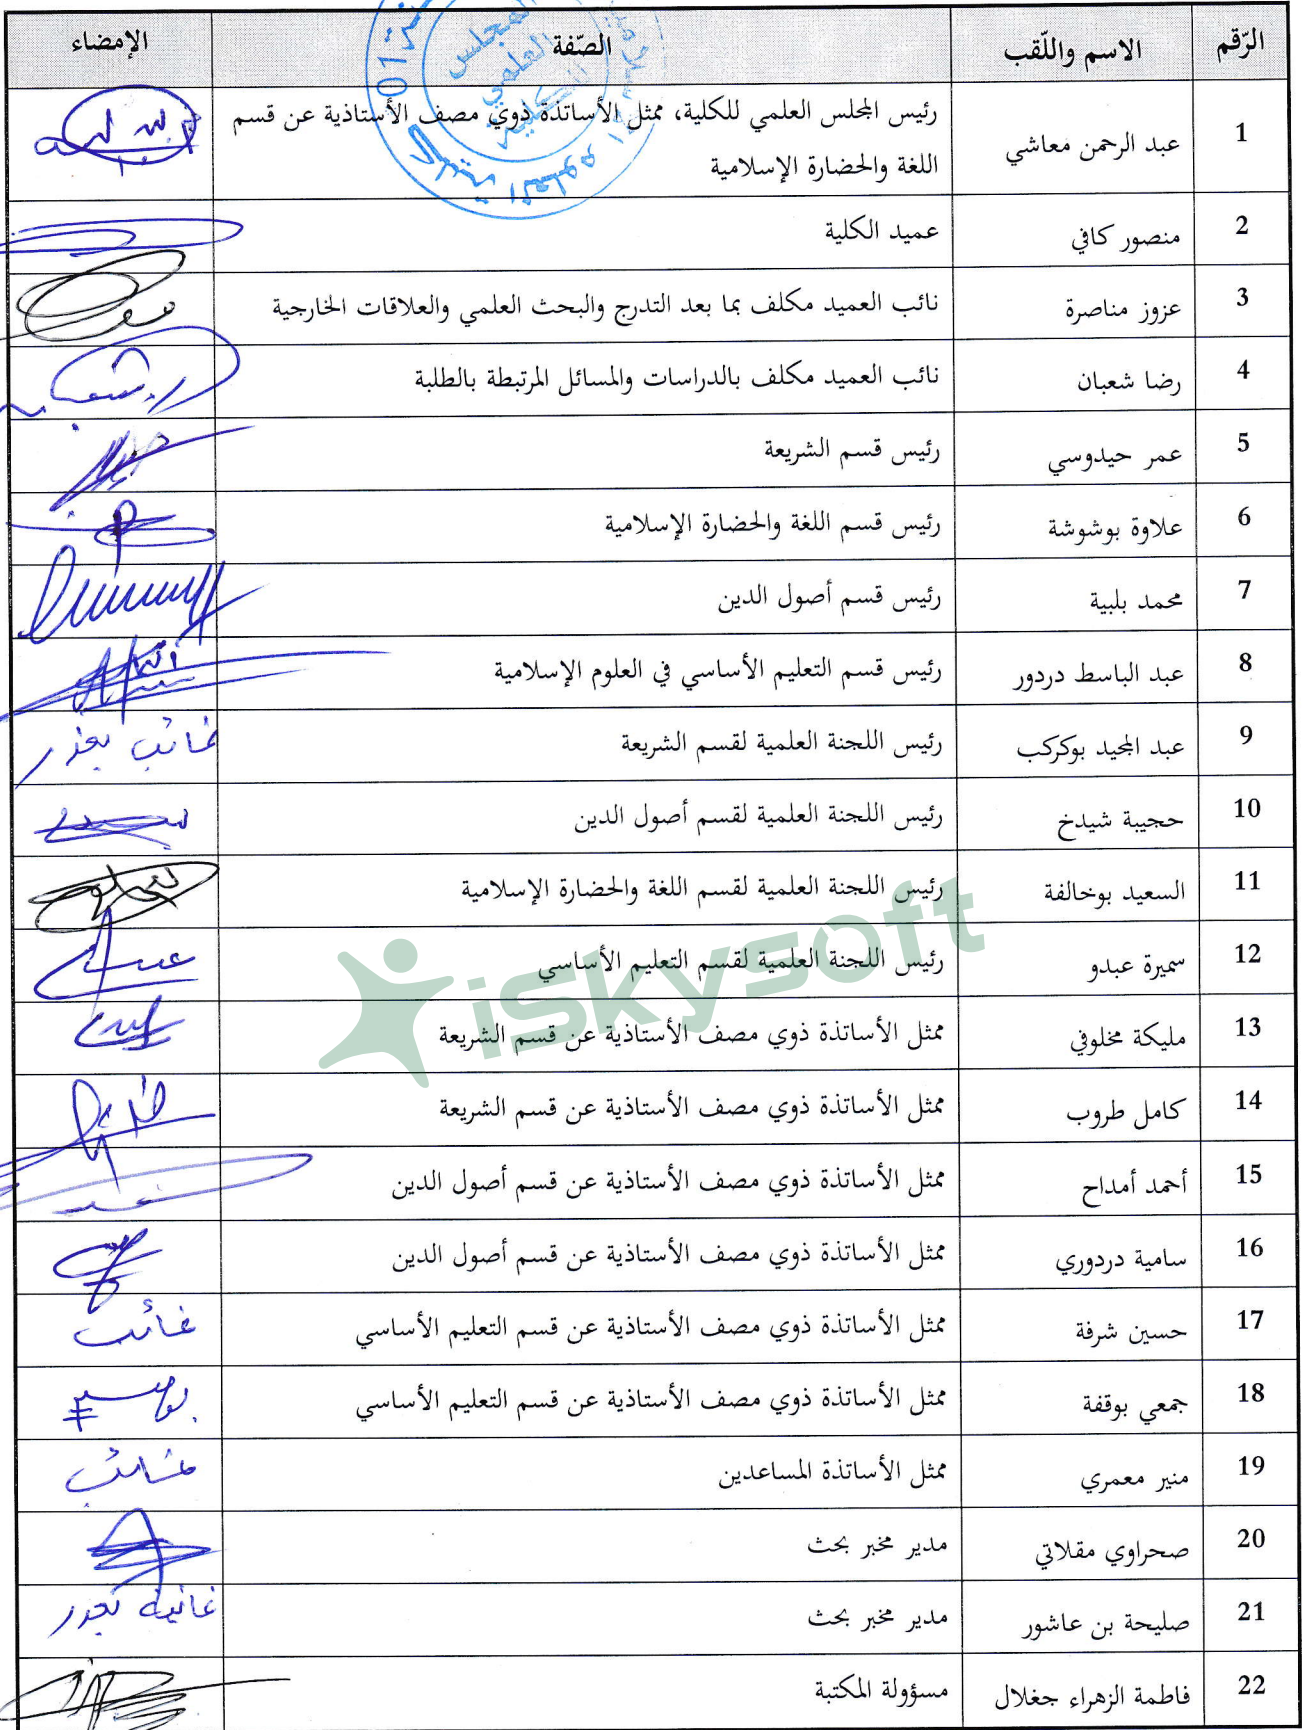 الرّقم الاسم واللّقب الصّفة الإمضاء
1 عبد الرحمن معاشي رئيس المجلس العلمي للكلية، ممثل الأساتذة ذوي مصف الأستاذية عن قسم
اللغة والحضارة الإسلامية
2 منصور كافي عميد الكلية
3 عزوز مناصرة نائب العميد مكلف بما بعد التدرج والبحث العلمي والعلاقات الخارجية
4 رضا شعبان نائب العميد مكلف بالدراسات والمسائل المرتبطة بالطلبة
5 عمر حيدوسي رئيس قسم الشريعة
6 علاوة بوشوشة رئيس قسم اللغة والحضارة الإسلامية
7 محمد بلبية رئيس قسم أصول الدين
8 عبد الباسط دردور رئيس قسم التعليم الأساسي في العلوم الإسلامية
9 عبد المجيد بوكركب رئيس اللجنة العلمية لقسم الشريعة غائب بعذر
10 حجيبة شيدخ رئيس اللجنة العلمية لقسم أصول الدين
11 السعيد بوخالفة رئيس اللجنة العلمية لقسم اللغة والحضارة الإسلامية
12 سميرة عبدو رئيس اللجنة العلمية لقسم التعليم الأساسي
iskysoft
13 مليكة مخلوفي ممثل الأساتذة ذوي مصف الأستاذية عن قسم الشريعة
14 كامل طروب ممثل الأساتذة ذوي مصف الأستاذية عن قسم الشريعة
15 أحمد أمداح ممثل الأساتذة ذوي مصف الأستاذية عن قسم أصول الدين
16 سامية دردوري ممثل الأساتذة ذوي مصف الأستاذية عن قسم أصول الدين
17 حسين شرفة ممثل الأساتذة ذوي مصف الأستاذية عن قسم التعليم الأساسي غائب
18 جمعي بوقفة ممثل الأساتذة ذوي مصف الأستاذية عن قسم التعليم الأساسي
19 منير معمري ممثل الأساتذة المساعدين غائب
20 صحراوي مقلاتي مدير مخبر بحث
21 صليحة بن عاشور مدير مخبر بحث غائبة بعذر
22 فاطمة الزهراء جغلال مسؤولة المكتبة